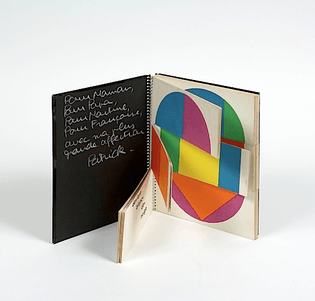 Pour Maman,
Pour Papa,
Pour Martine,
Pour Françoise,
avec ma plus
grande affection
Patrick -